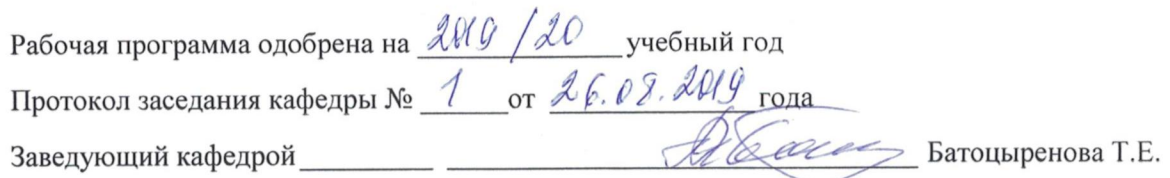 Рабочая программа одобрена на 2019/20 учебный год
Протокол заседания кафедры № 1 от 26.08.2019 года
Заведующий кафедрой Батоцыренова Т.Е.